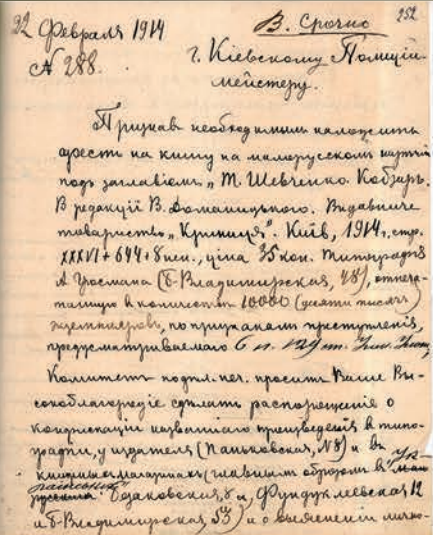 22 Февраля 1914
В. Срочно
252
№ 288.
г. Кіевскому Полицій-
мейстеру.
Признавъ необходимымъ наложить
арестъ на книгу на малорусскомъ нарѣчіи
подъ заглавіемъ „Т. Шевченко. Кобзарь.
В редакціі В. Доманицького. Видавниче
товариство „Криниця". Київ, 1914 г., стр.
XXXVI + 644 + 8 нен., ціна 35 коп. Типографія
(Б-Владимирская, 48), отпеча-
танную в количествѣ 10000 (десяти тысячъ)
экземпляровъ, по признакамъ преступленія,
предусматриваемаго 6 п. 129 ст. Угол. Улож.,
Комитетъ по дѣл. печ. просит Ваше Вы-
сокоблагородіе сдѣлать распоряженіе о
конфискаціи названнаго произведенія в типо-
графіи, у издателя (Паньковская, №8) и въ
книжныхъ магазинахъ (главнымъ образомъ в
русскихъ: Фундуклеевская 12
и Б-Владимирская, 53) и о выясненіи лично-